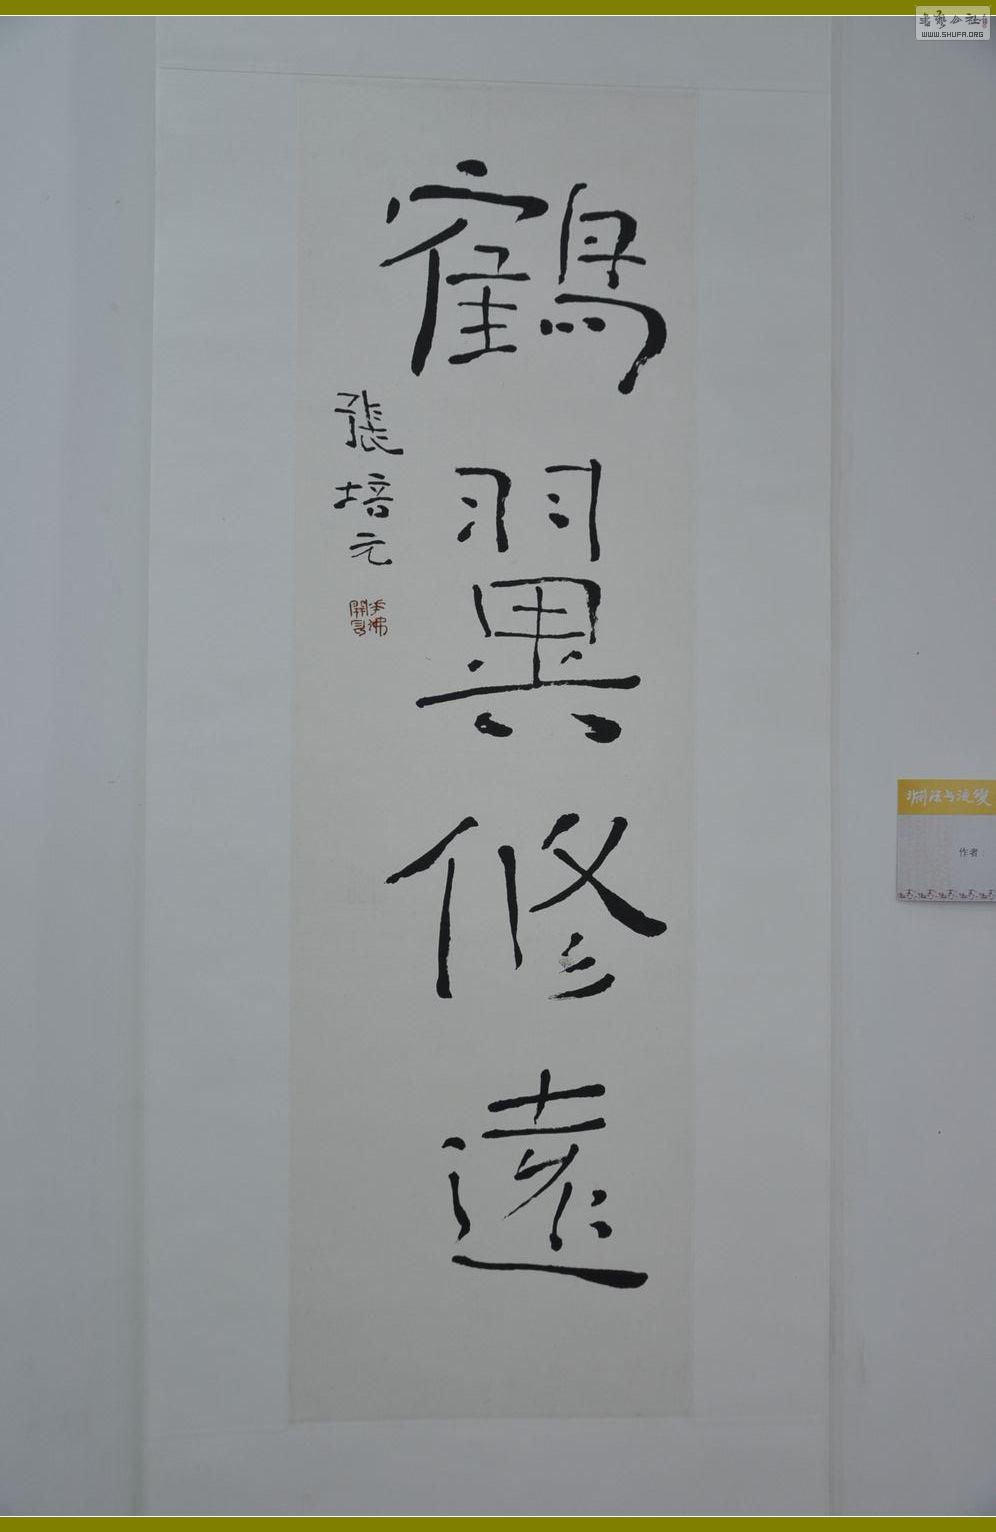 鶴翼修遠
張培元
作者：
書藝公社
WWW.SHUFA.ORG